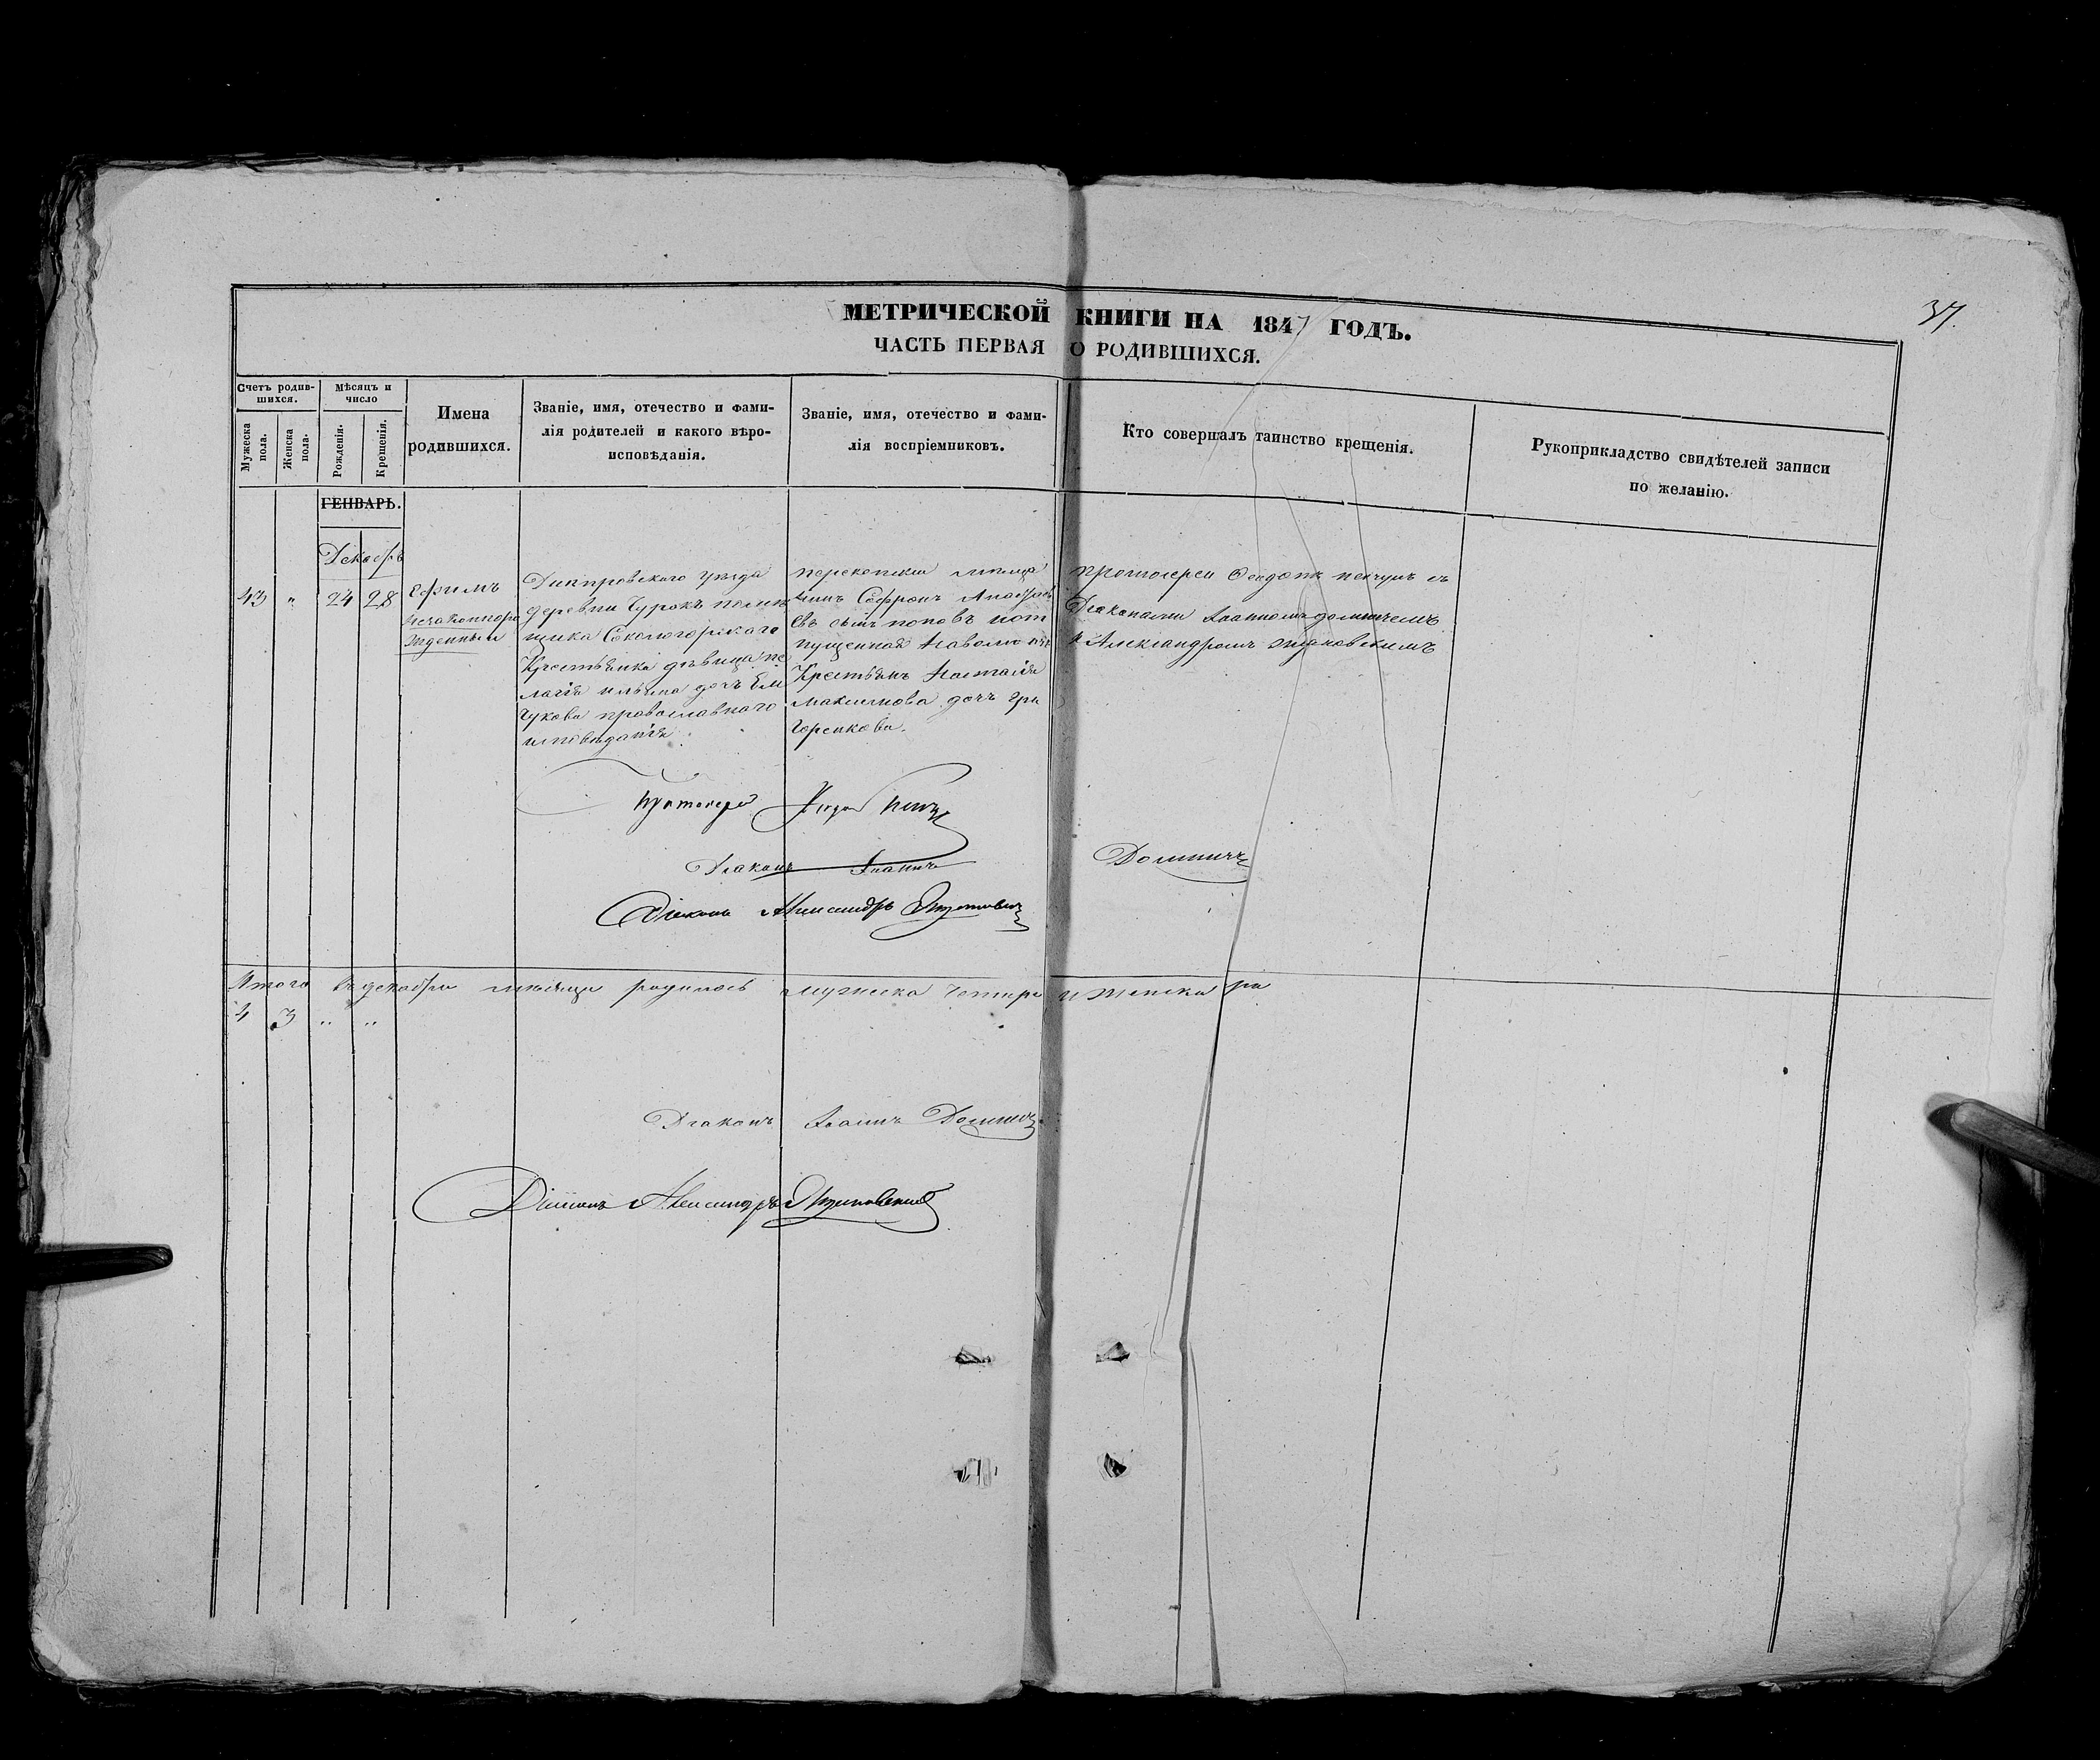 37.
МЕТРИЧЕСКОЙ КНИГИ НА 1847 ГОДЪ.
ЧАСТЬ ПЕРВАЯ О РОДИВШИХСЯ.
Счетъ родив-
шихся.
Мужеска
пола.
Женска
пола.
Мѣсяцъ и
число
Рожденія.
Крещенія.
Имена
родившихся.
Званіе, имя, отечество и фами-
лія родителей и какого вѣро-
исповѣданія.
Званіе, имя, отечество и фами-
лія воспріемниковъ.
Кто совершалъ таинство крещенія.
Рукоприкладство свидѣтелей записи
по желанію.
ГЕНВАРЬ.
Декабрь
43 " 24 28
Ефимъ
незаконноро
жденный
Днѣпровскаго уѣзда
деревни Чурокъ помѣ
щика Сокологорскаго
Крестьянка дѣвица пе
лагія ильина дочь
чукова православнаго
исповѣданія
перекопскій мѣща
нинъ Софронъ
евъ сынъ поповъ
пущенной на волю
Крестьянъ Наталія
максимова дочь гри
горенкова.
протоіерей съ
Діаконами Іоанномъ
и Александромъ
Протоіерей
Діаконъ Іоаннъ
Діаконъ Александръ
Итого въ декабрѣ мѣсяцѣ родилось мужеска четыре и женска
4 3 " "
Діаконъ Іоаннъ
Діаконъ Александръ